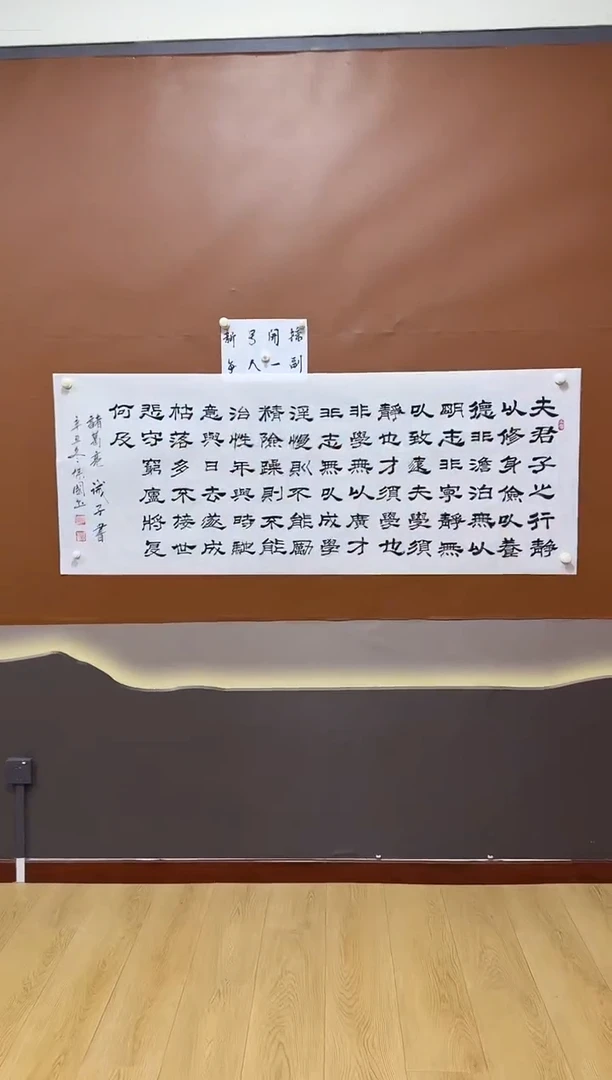 夫君子之行靜
以修身儉以養
德非澹泊無以
明志非寧靜無
以致遠夫學須
靜也才須學也
非學無以廣才
非志無以成學
淫慢則不能勵
精險躁則不能
治性年與時馳
意與日去遂成
枯落多不接世
悲守窮廬將复
何及
諸葛亮 誡子書
辛丑冬